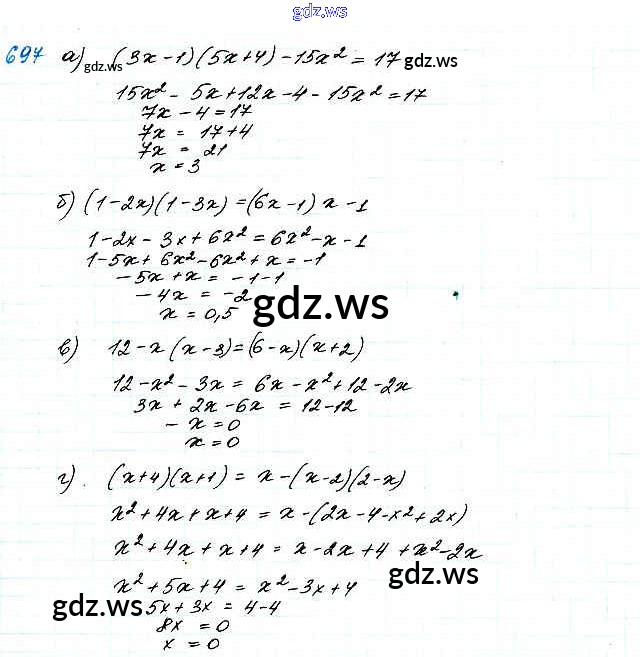 gdz.ws
697 а) (3x-1)(5x+4)-15x² = 17
gdz.ws gdz.ws
15x² - 5x+12x-4-15x² = 17
7x-4=17
7x = 17+4
7x = 21
x = 3
б) (1-2x)(1-3x) = (6x-1) x -1
1-2x-3x+6x² = 6x²-x-1
1-5x+6x²-6x²+x = -1
-5x+x = -1-1
-4x = -2
x = 0,5
gdz.ws
в) 12-x (x-3)=(6-x)(x+2)
12-x²-3x = 6x-x²+12-2x
3x+2x-6x = 12-12
-x=0
x=0
г). (x+4)(x+1) = x-(x-2)(2-x)
x²+4x+x+4 = x-(2x-4-x²+2x)
x²+4x+x+4 = x-2x+4+x²-2x
gdz.ws
x²+5x+4 = x²-3x+4
gdz.ws 5x+3x = 4-4
8x = 0
x = 0